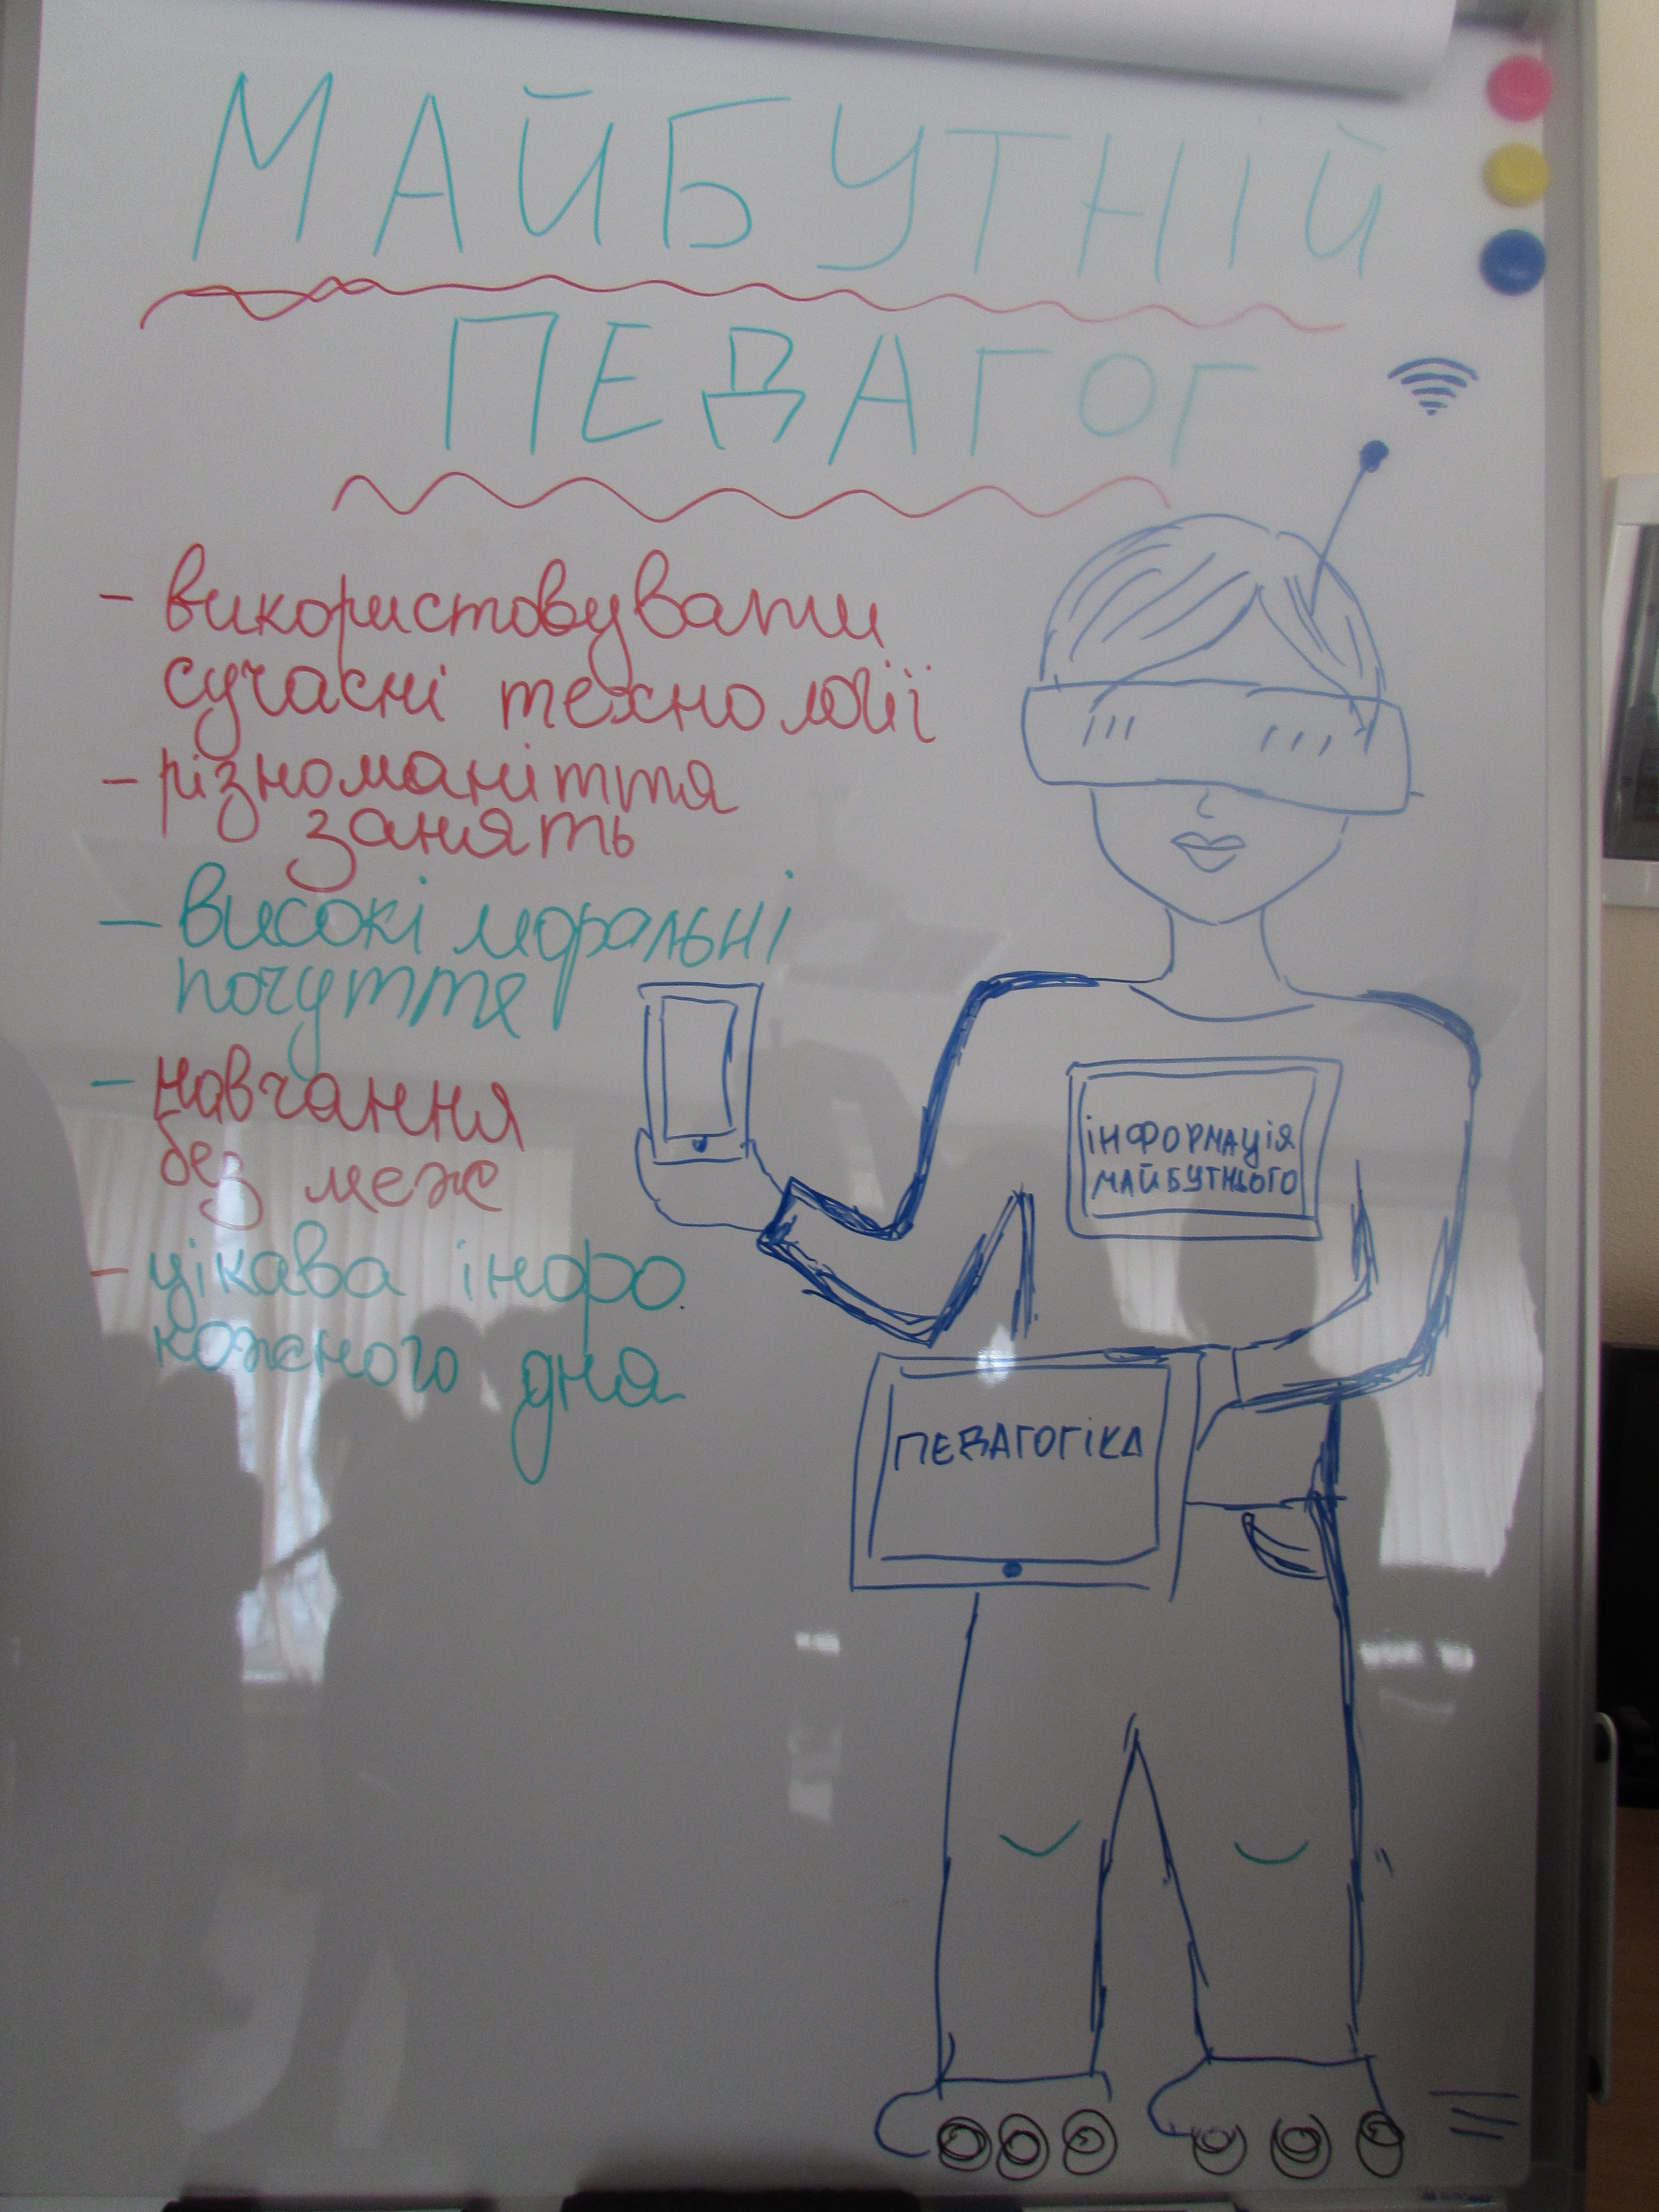 МАЙБУТНІЙ
ПЕДАГОГ
- використовувати
сучасні технології
- різноманіття
занять
- високі моральні
почуття
- навчання
без меж
- цікава інфо
кожного дня
ІНФОРМАЦІЯ
МАЙБУТНЬОГО
ПЕДАГОГІКА